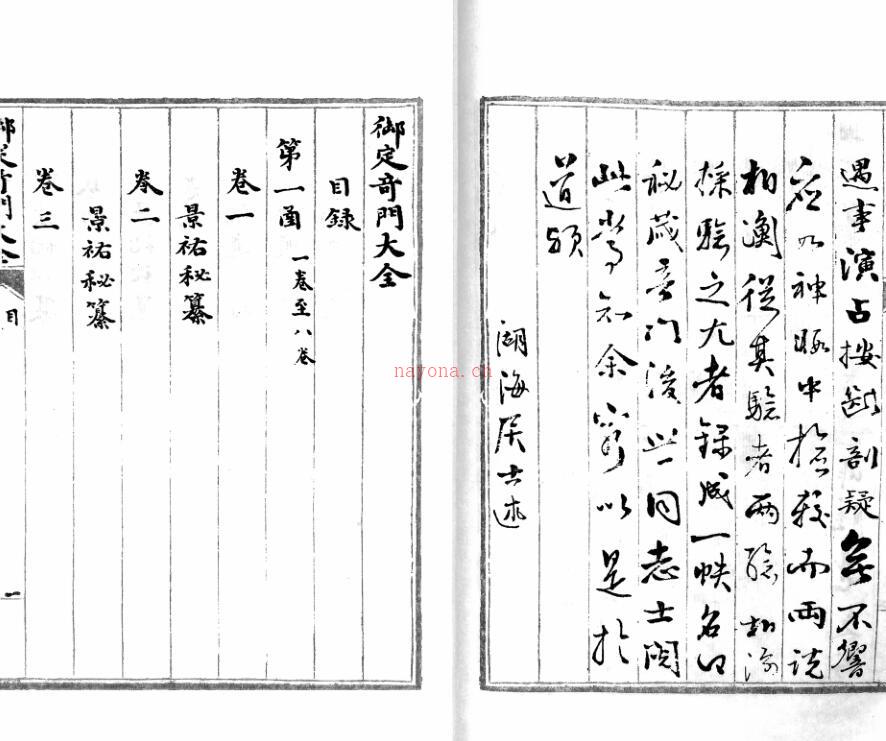 遇事演占按斷剖疑無不響
應如神暇中撿較而兩說
相衡從其驗者兩驗相
採驗之尤者錄成一帙名曰
秘藏奇門後此同志士閱
此當知余窮以是於
道
湖海居士述
御定奇門大全
目録
第一函 一卷至八卷
卷一
景祐秘纂
卷二
景祐秘纂
卷三
御定奇門大全 目 一
nayona.cn